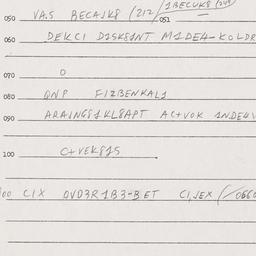 050 VA.S BECAJK8 (212/1BECUK8
051
060 DEKCI D1SK81NT M1DE4-KOLDR
070 O
080 QNP FIZBENKAL1
090 ARAING81KL8APT AC+VOK 1NDE4V
100 C+VEK815
00 CIX OVD3R1B3-BET CI,JEX (/066